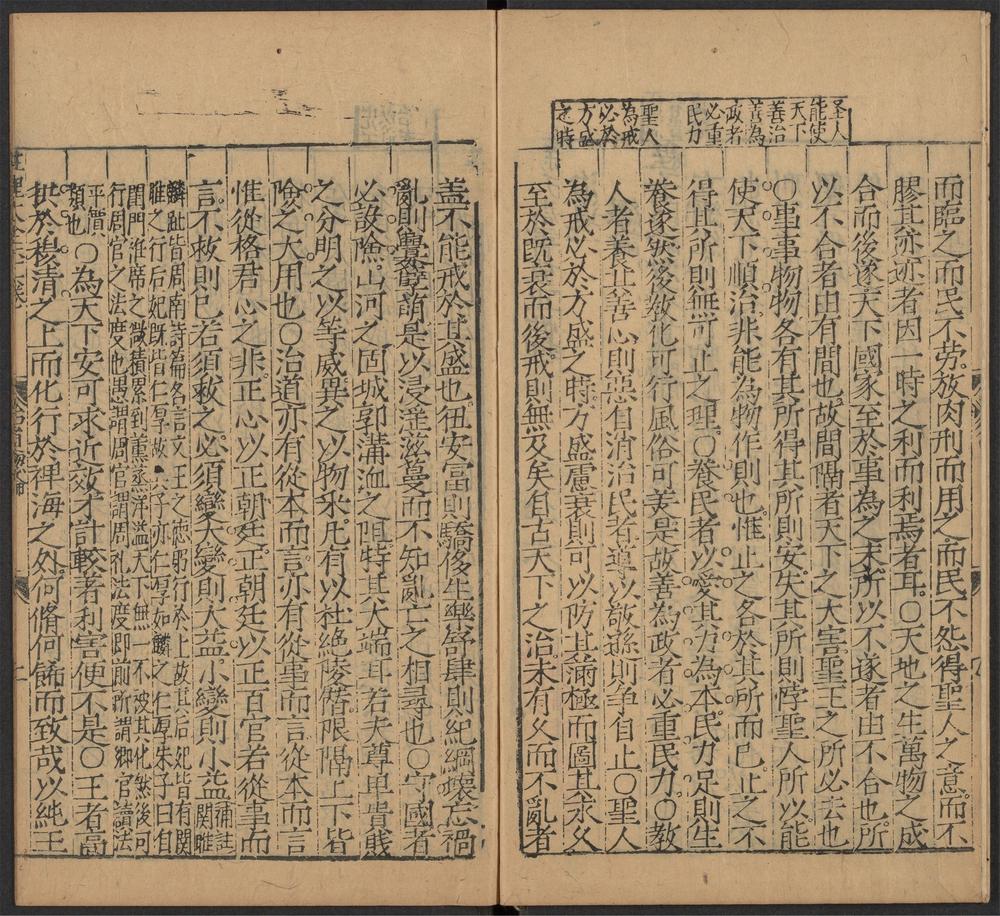 聖人
能使
天下
善治
善為
政者
必重
民力
聖人
為戒
必於
方盛
之時
而臨之而民不勞放肉刑而用之而民不怨得聖人之意而不
膠其迹迹者因一時之利而利焉者耳〇天地之生萬物之成
合而後遂天下國家至於事為之末所以不遂者由不合也所
以不合者由有間也故間隔者天下之大害聖王之所必去也
〇事事物物各有其所得其所則安失其所則悖聖人所以能
使天下順治非能為物作則也惟止之各於其所而已止之不
得其所則無可止之理〇養民者以愛其力為本民力足則生
養遂然後教化可行風俗可美是故善為政者必重民力〇教
人者養其善心則惡自消治民者導以敬遜則爭自止〇聖人
為戒必於方盛之時方盛慮衰則可以防其滿極而圖其永久
至於既衰而後戒則無及矣自古天下之治未有久而不亂者
蓋不能戒於其盛也狃安富則驕侈生樂舒肆則紀綱壞忘禍
亂則釁孽萌是以浸淫滋蔓而不知亂亡之相尋也〇守國者
必設險山河之固城郭溝洫之阻特其大端耳若夫尊卑貴賤
之分明之以等威異之以物采凡有以杜絕陵僭限隔上下皆
險之大用也〇治道亦有從本而言亦有從事而言從本而言
惟從格君心之非正心以正朝廷正朝廷以正百官若從事而
言不救則已若須救之必須變大變則大益小變則小益補註關雎
麟趾皆周南詩篇名言文王之德躬行於上故其后妃皆有關
雎之行后妃既皆仁厚故公子亦仁厚如麟之仁厚朱子曰自
閨門衽席之微積累到薰蒸洋溢天下無一不被其化然後可
行周官之法度也愚謂周官謂周礼法度即前所謂鄉官讀法
平價類也〇為天下安可求近效才計較著利害便不是〇王者高
拱於穆清之上而化行於裨海之外何脩何飾而致哉以純王